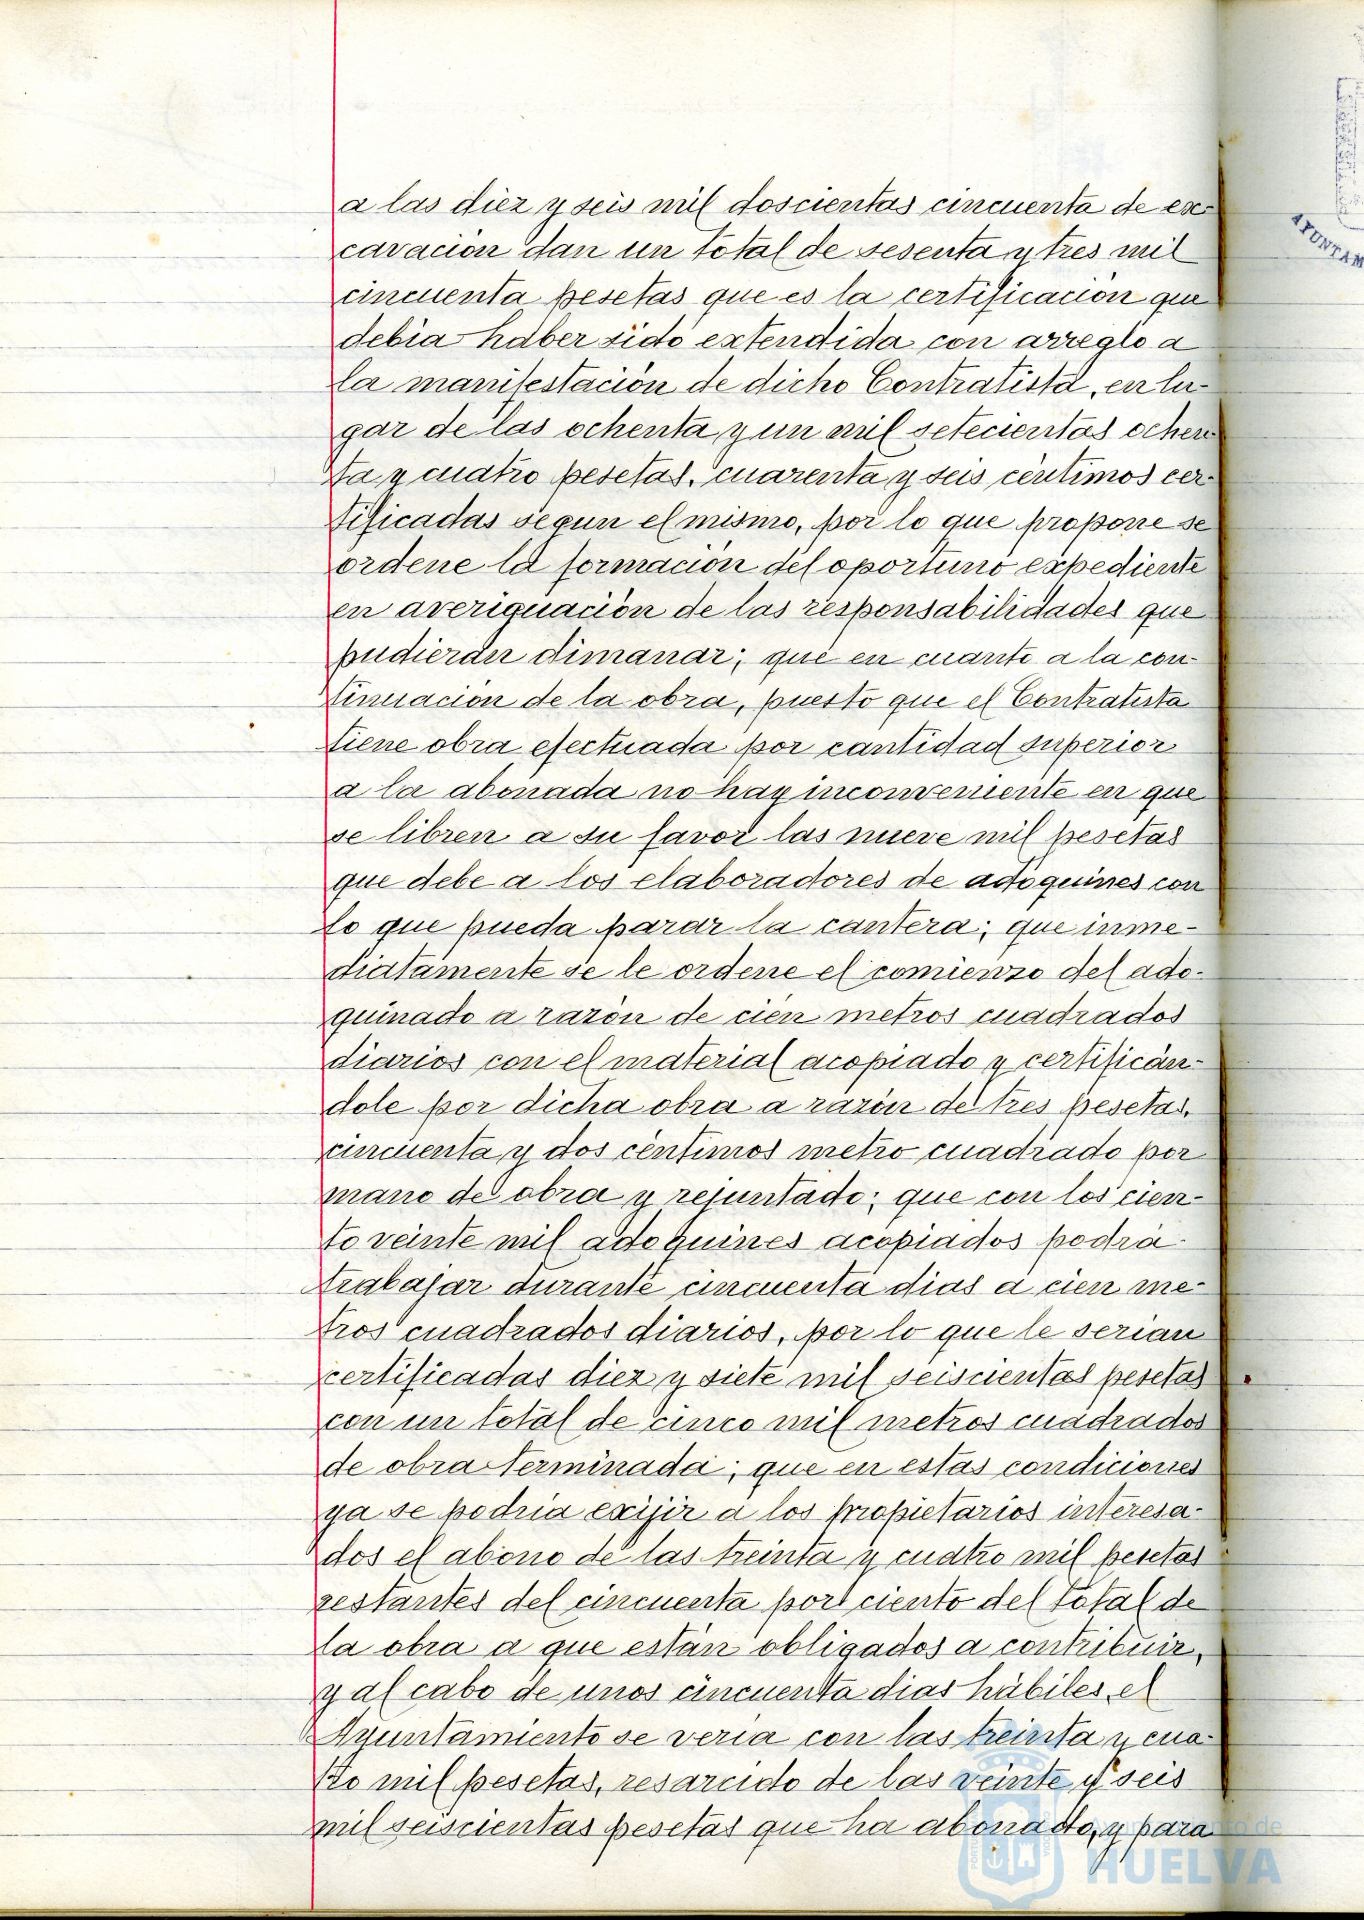 a las diez y seis mil doscientas cincuenta de ex-
cavación dan un total de sesenta y tres mil
cincuenta pesetas que es la certificación que
debia haber sido extendida con arreglo a
la manifestación de dicho Contratista, en lu-
gar de las ochenta y un mil setecientas ochen-
ta y cuatro pesetas, cuarenta y seis céntimos cer-
tificadas segun el mismo, por lo que propone se
ordene la formación del oportuno expediente
en averiguación de las responsabilidades que
pudieran dimanar; que en cuanto a la con-
tinuación de la obra, puesto que el Contratista
tiene obra efectuada por cantidad superior
a la abonada no hay inconveniente en que
se libren a su favor las nueve mil pesetas
que debe a los elaboradores de adoquines con
lo que pueda parar la cantera; que inme-
diatamente se le ordene el comienzo del ado-
quinado a razón de cien metros cuadrados
diarios con el material acopiado y certificán-
dole por dicha obra a razón de tres pesetas,
cincuenta y dos céntimos metro cuadrado por
mano de obra y rejuntado; que con los cien-
to veinte mil adoquines acopiados podrá
trabajar durante cincuenta dias a cien me-
tros cuadrados diarios, por lo que le serian
certificadas diez y siete mil seiscientas pesetas
con un total de cinco mil metros cuadrados
de obra terminada; que en estas condiciones
ya se podria exijir a los propietarios interesa-
dos el abono de las treinta y cuatro mil pesetas
restantes del cincuenta por ciento del total de
la obra a que están obligados a contribuir,
y al cabo de unos cincuenta dias hábiles, el
Ayuntamiento se veria con las treinta y cua-
tro mil pesetas, resarcido de las veinte y seis
mil seiscientas pesetas que ha abonado, y para
AYUNTAM
Ayuntamiento de
HUELVA